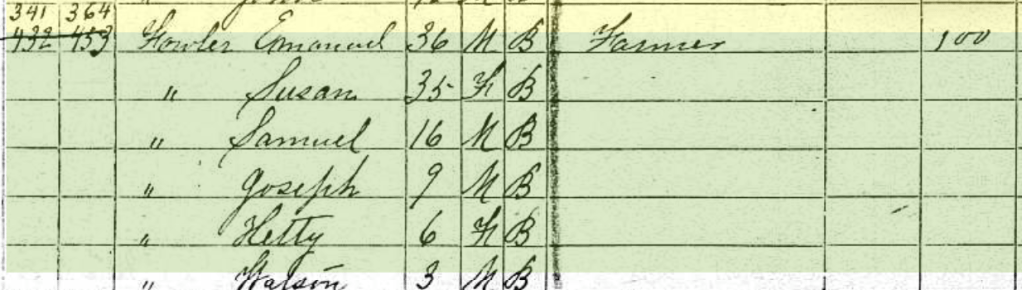 341 364
432 453 Fowler Emanuel 36 M B Farmer 100
" Susan 35 F B
" Samuel 16 M B
" Joseph 9 M B
" Hetty 6 F B
" Watson 3 M B